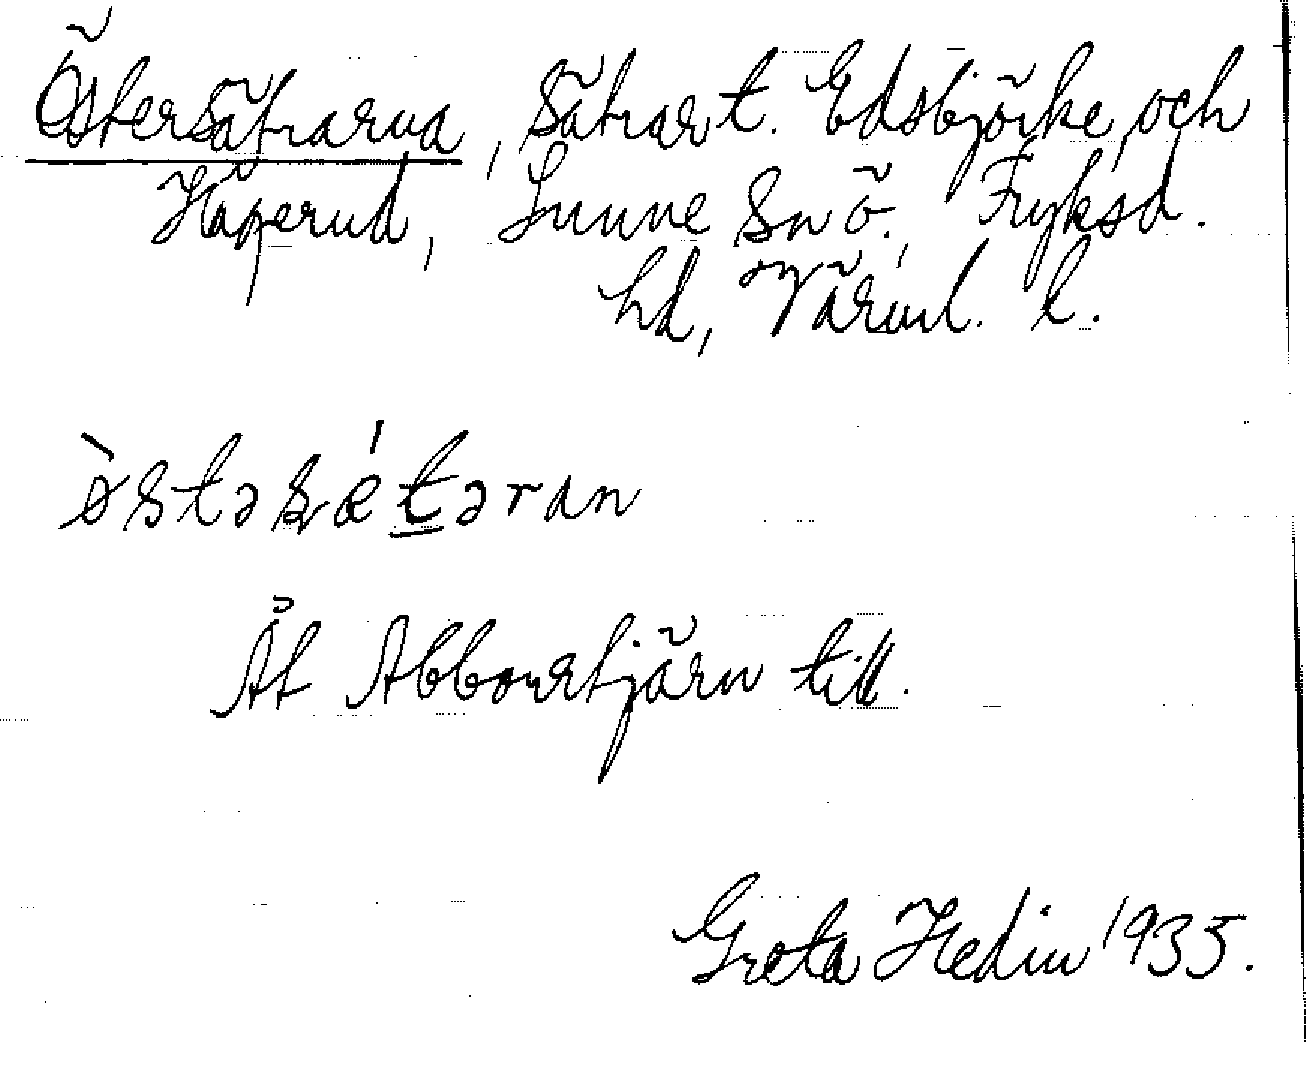 Östersätrarna, Sätrar t. Edsbjörke, och
Håperud, Sunne Snö., Fryksd.
hd, Värml. l.
östəsǽtəran
Åt Abborrtjärn till.
Greta Hedin 1935.